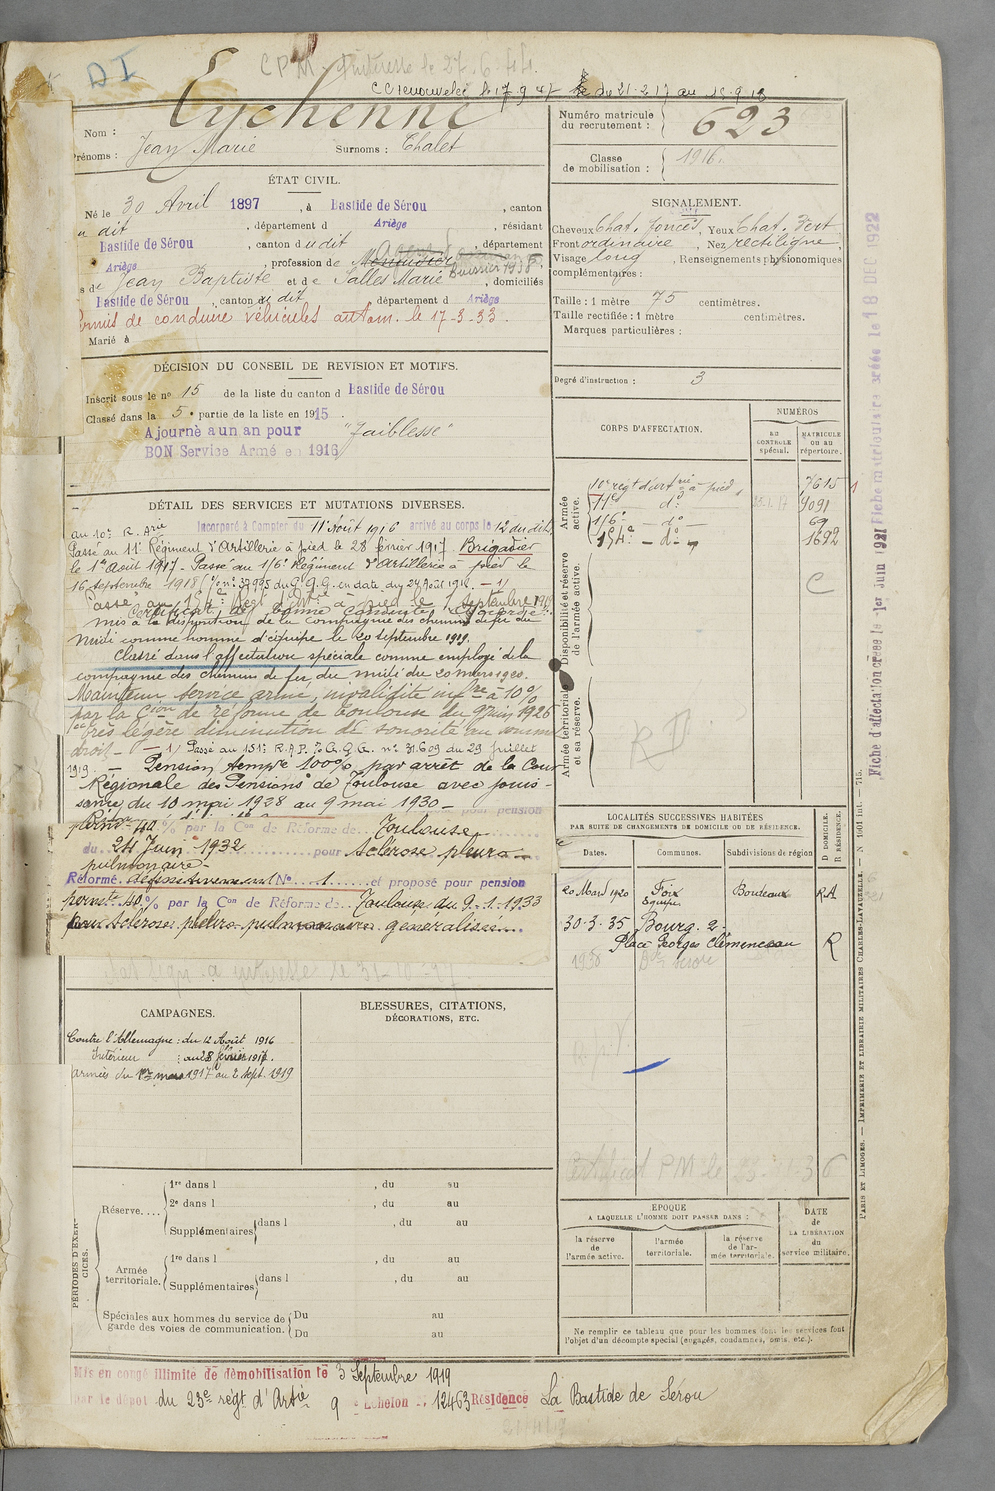 DI
CPM intéressé le 27.6.44.
CC renouvelée le 17.9.4 du 21-2.17 au 18-9-18
Nom : Eychenne
Prénoms : Jean Marie Surnoms : Chalet
ÉTAT CIVIL.
Né le 30 Avril 1897, à Bastide de Sérou, canton
u dit, département d Ariège, résidant
Bastide de Sérou, canton d u dit, département
Ariège, profession de Menuisier
Huissier 1938
s de Jean Baptiste et de Salles Marie, domiciliés
Bastide de Sérou, canton du dit, département d Ariège
Permis de conduire véhicules autom. le 17-3-33.
Marié à
DÉCISION DU CONSEIL DE REVISION ET MOTIFS.
Inscrit sous le no 15 de la liste du canton d Bastide de Sérou
Classé dans la 5e partie de la liste en 1915.
Ajourné a un an pour "Faiblesse"
BON Service Armé en 1916
DÉTAIL DES SERVICES ET MUTATIONS DIVERSES.
Incorporé à Compter du 11 Août 1916 arrivé au corps le 12 du dit.
au 10e R. Arie
Passé au 11e Régiment d'Artillerie à pied le 28 février 1917. Brigadier
le 1er Août 1917 - Passé au 1/6e Régiment d'Artillerie à pied le
16 Septembre 1918 (Von 37995 du G.Q.G. en date du 24 Août 1918. - 1/
Passé au 154e Regt d'Artie à pied le 1 Septembre 1919
Certificat de bonne conduite "Accordé"
mis à la disposition de la Compagnie des chemins de fer du
Midi comme homme d'équipe le 20 septembre 1919.
Classé dans l'affectation spéciale comme employé de la
compagnie des chemins de fer du midi du 20 mars 1920.
Maintenu service armé, invalidité infre à 10%
par la Cion de réforme de Toulouse du 9 Juin 1926
très légère diminution de sonorité au sommet
droit - - 1/ Passé au 151e R.A.P. G.Q.G. no 31.609 du 23 juillet
1919. - Pension tempre 100% par arrêt de la Cour
Régionale des Pensions de Toulouse avec jouis-
sance du 10 mai 1928 au 9 mai 1930 -
pour pension
permte 40% par la Con de Réforme de Toulouse
du 24 Juin 1932 pour sclérose pleuro-
pulmonaire -
Réformé définitivement No 1 et proposé pour pension
permte 40% par la Con de Réforme de Toulouse du 9-1-1933
pour sclérose pleuro-pulmonaire généralisée
intéressé le 31-10-
CAMPAGNES.
Contre l'Allemagne : du 12 Août 1916
Intérieur : au 28 février 1917.
Armées du 1er mars 1917 au 2 Sept. 1919
BLESSURES, CITATIONS,
DÉCORATIONS, ETC.
PÉRIODES D'EXERCICES.
Réserve....
1re dans l , du au
2e dans l , du au
Supplémentaires dans l , du au
au
Armée territoriale.
1re dans l , du au
Supplémentaires dans l , du au
au
Spéciales aux hommes du service de garde des voies de communication. Du au
Du au
Mis en congé illimité de démobilisation le 3 Septembre 1919
par le dépôt du 23e régt d'Artie 9 e Echelon no 12463 Résidence La Bastide de Sérou
Numéro matricule
du recrutement : 623
Classe
de mobilisation : 1916.
SIGNALEMENT.
Cheveux Chat. foncés, Yeux Chat. Vert
Front ordinaire, Nez rectiligne,
Visage long, Renseignements physionomiques
complémentaires :
Taille : 1 mètre 75 centimètres.
Taille rectifiée : 1 mètre centimètres.
Marques particulières :
Degré d'instruction : 3
CORPS D'AFFECTATION.
NUMÉROS
AU CONTROLE spécial.
MATRICULE OU AU répertoire.
Armée active.
10e régt d'artrie à pied 7615
11e do 4091
1/6e - do 69
154e - do 1692
Disponibilité et réserve de l'armée active.
C
Armée territoriale et sa réserve.
RD
LOCALITÉS SUCCESSIVES HABITÉES
PAR SUITE DE CHANGEMENTS DE DOMICILE OU DE RÉSIDENCE.
Dates. Communes. Subdivisions de région. D DOMICILE. R RÉSIDENCE.
20 Mars 1920 Foix Bordeaux RA
Equipe
30-3.35 Bourg. 2.
Place Georges Clémenceau R
1938
Certificat PM le 23- 1-36
EPOQUE
A LAQUELLE L'HOMME DOIT PASSER DANS :
la réserve de l'armée active.
l'armée territoriale.
la réserve de l'armée territoriale.
DATE
de
LA LIBÉRATION
du
service militaire.
Ne remplir ce tableau que pour les hommes dont les services font
l'objet d'un décompte spécial (engagés, condamnés, omis, etc.).
Fiche d'affectation créée le 1er Juin 1921 Fiche matriculaire créée le 18 DEC 1922
PARIS ET LIMOGES. — IMPRIMERIE ET LIBRAIRIE MILITAIRES CHARLES-LAVAUZELLE. — N 1601 int. — 715.